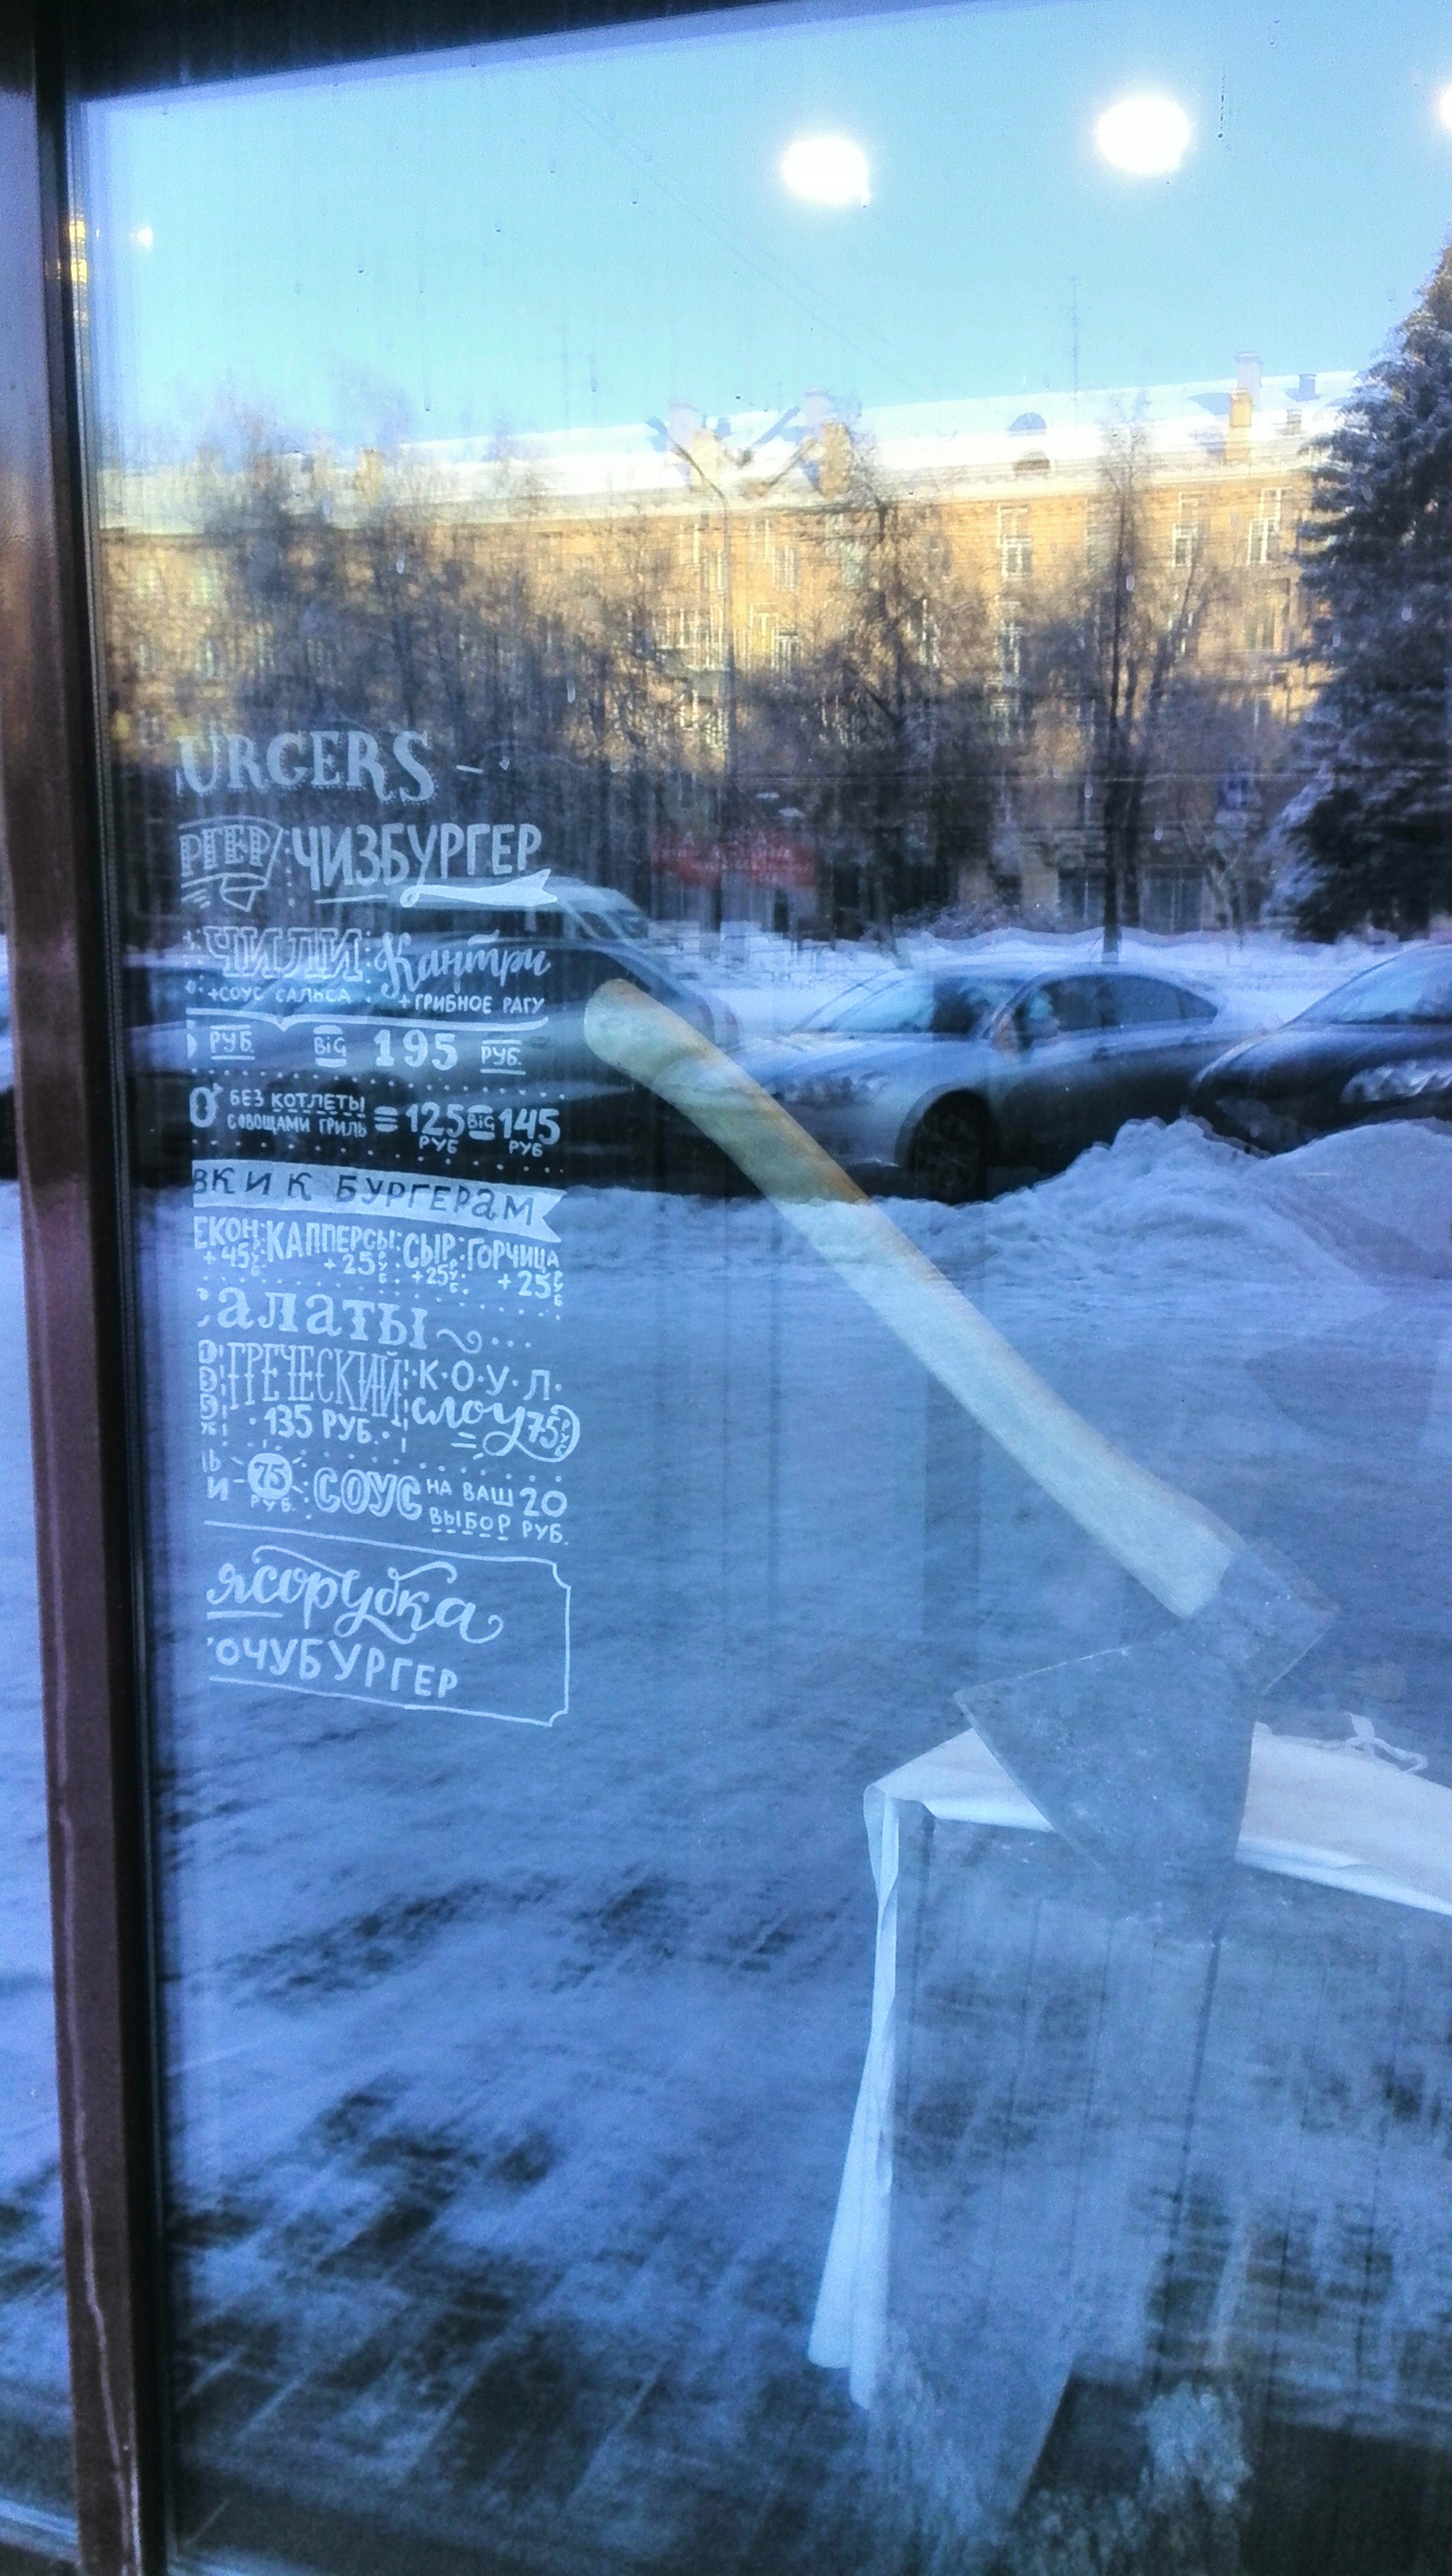 URGERS
РГЕР ЧИЗБУРГЕР
ЧИЛИ Кантри
+СОУС САЛЬСА +ГРИБНОЕ РАГУ
РУБ. BIG 195 РУБ.
БЕЗ КОТЛЕТЫ
С ОВОЩАМИ ГРИЛЬ = 125 РУБ BIG 145 РУБ
ВКИ К БУРГЕРАМ
ЕКОН +45 РУБ. КАППЕРСЫ +25 РУБ. СЫР +25 РУБ. ГОРЧИЦА +25 РУБ
алаты
ГРЕЧЕСКИЙ 135 РУБ. К.О.У.Л. слоу = 75 РУБ
75 РУБ. СОУС НА ВАШ ВЫБОР 20 РУБ.
ясорубка
ОЧУБУРГЕР